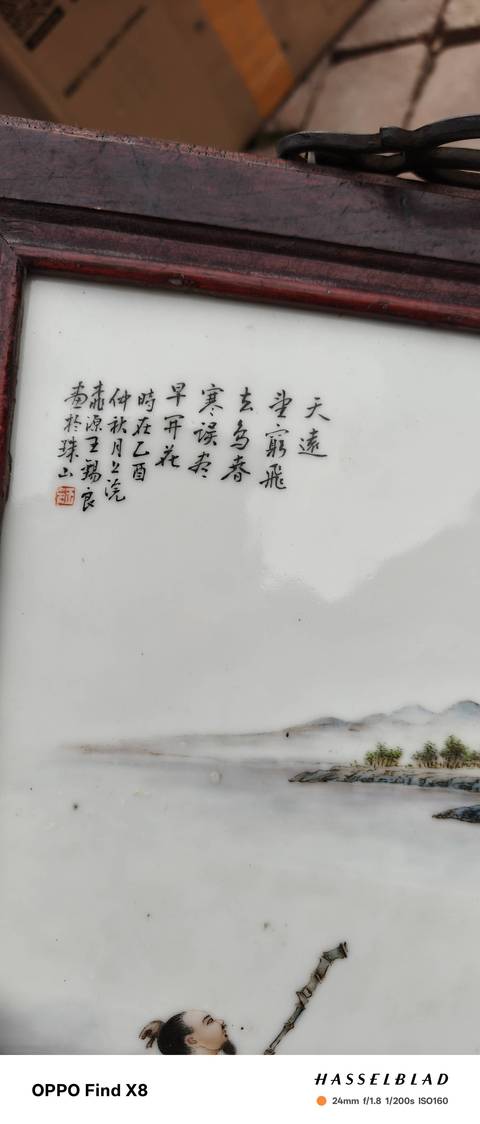 天遠
望窮飛
去鳥春
寒误尽
早开花
時在乙酉
仲秋月上浣
燾源王錫良
畫於珠山
OPPO Find X8
HASSELBLAD
24mm f/1.8 1/200s ISO160